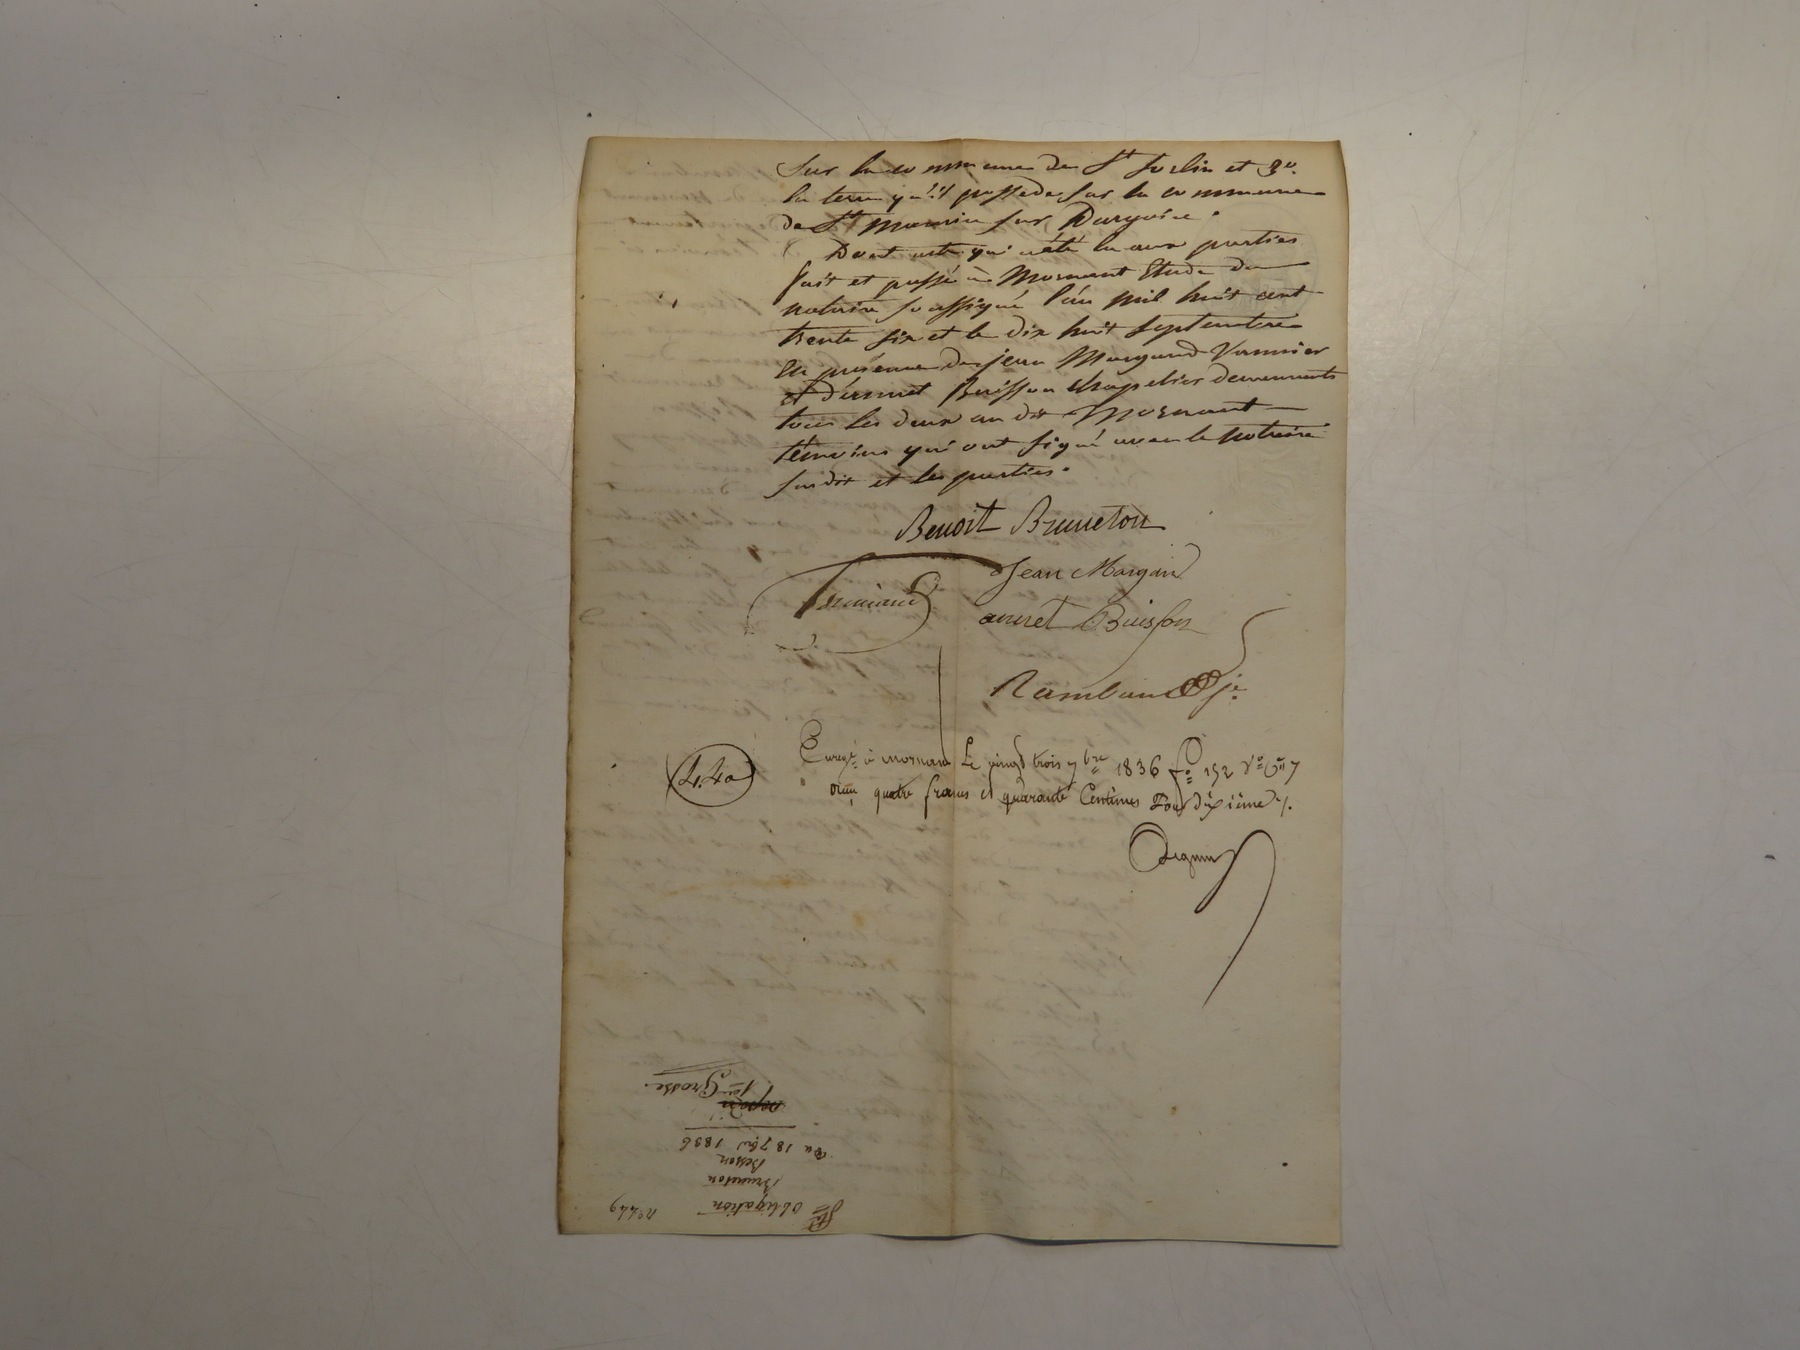 Sur la commune de St Sorlin et 3o.
la terre qu'il possede sur la commune
de St Maurice sur Dargoire.
Dont acte qui a été lu aux parties
fait et passé à Mornant Etude du
notaire soussigné l'an mil huit cent
trente six et le dix huit Septembre
En présence de jean Margand Vannier
et d'énnet Buisson chapelier demeurants
tous les deux au dit Mornant
témoins qui ont signé avec le notaire
susdit et les parties.
Benoit Bruneton
Jean Margand
annet Buisson
4.40
Enregé à mornant Le vingt trois 7bre 1836 fo 192 Vo Cse 7
Reçu quatre francs et quarante Centimes Pour dixième %.
no 449
Obligation
Bruneton
Besson
Du 18 7bre 1836
expédié
1ere Grosse.